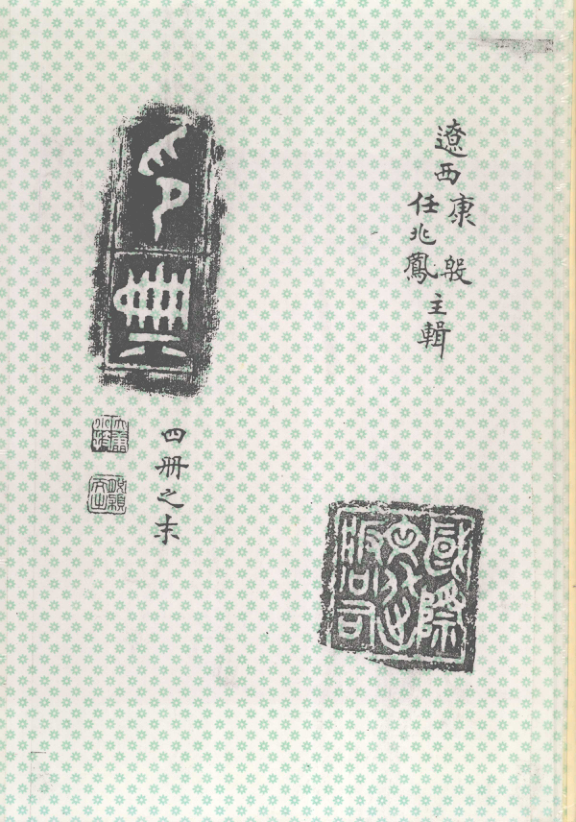 遼西康殷
任兆鳳
主輯
印典
四冊之末
國際
文化出
版公司